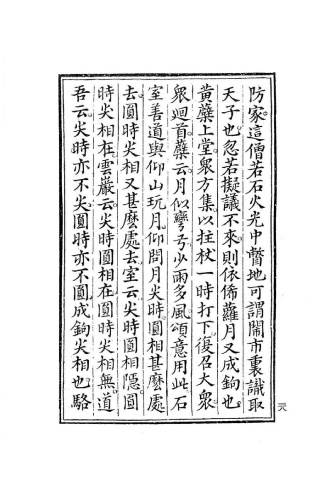 防家這僧若石火光中瞥地可謂鬧市裏識取
天子也忽若擬議不來則依俙蘿月又成鉤也
黃蘗上堂眾方集以拄杖一時打下復召大眾
眾迴首蘗云月似彎弓少雨多風頌意用此石
室善道與仰山玩月仰問月尖時圓相甚麽處
去圓時尖相又甚麽處去室云尖時圓相隱圓
時尖相在雲巖云尖時圓相在圓時尖相無道
吾云尖時亦不尖圓時亦不圓成鉤尖相也駱